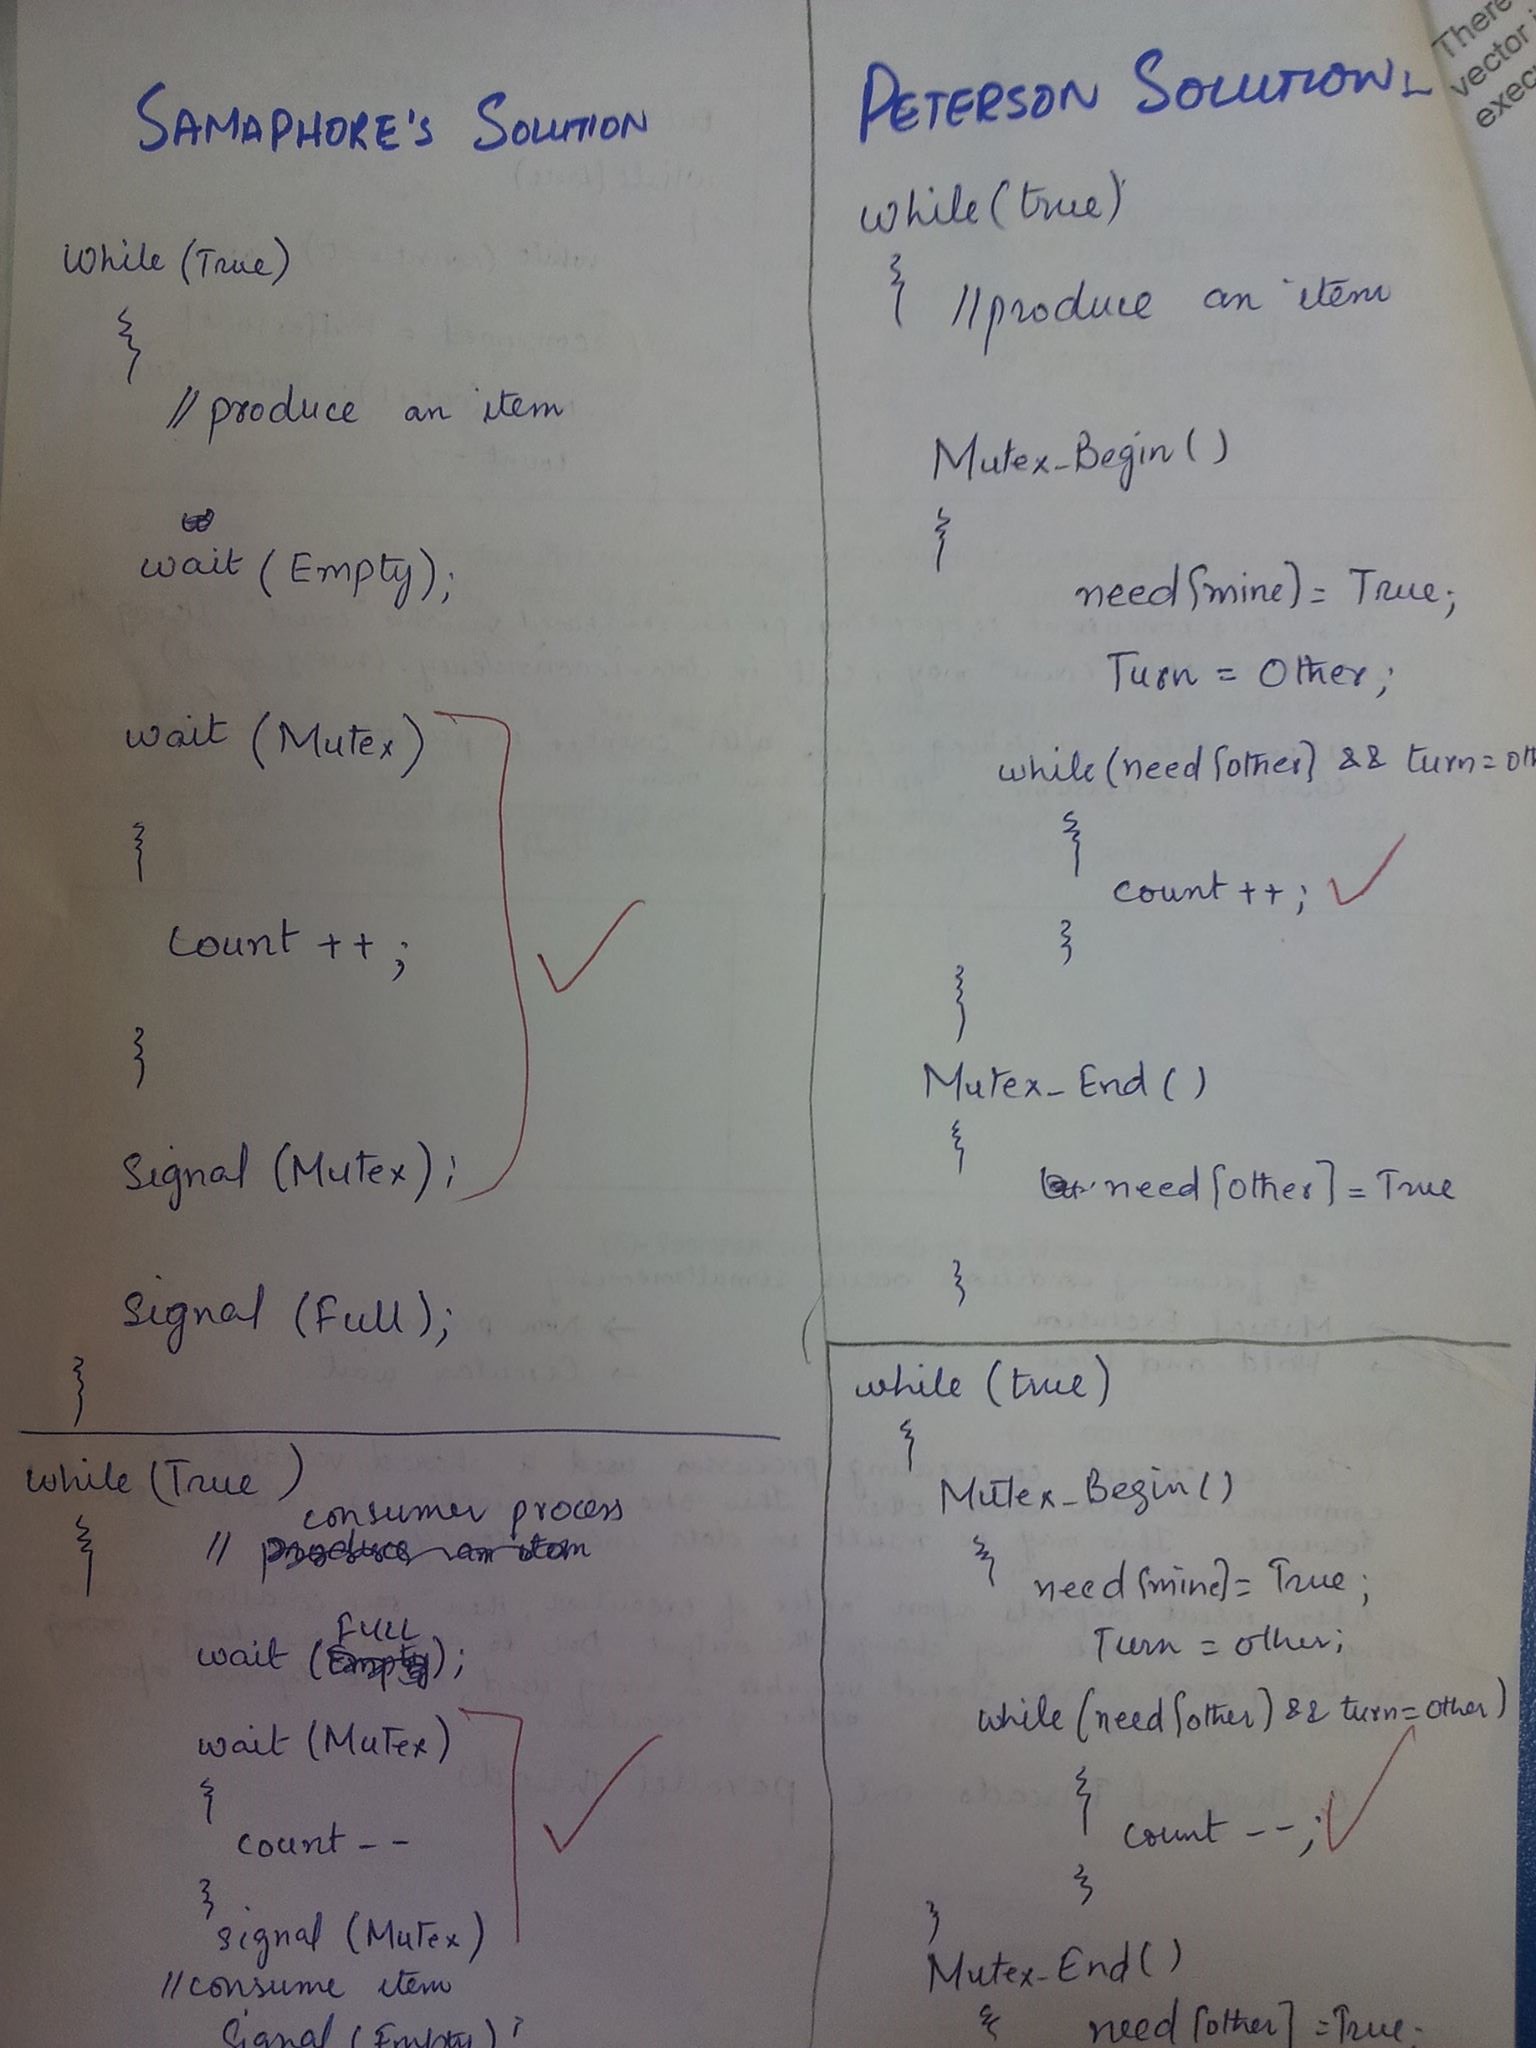 SAMAPHORE'S SOLUTION
while (True)
{
// produce an item
wait (Empty);
wait (Mutex)
{
count ++ ;
}
signal (Mutex);
signal (Full);
}
while (True)
{
consumer process
//
FULL
wait ( );
wait (Mutex)
{
count - -
}
signal (Mutex)
//consume item
signal (Empty);
PETERSON SOLUTION
while (true)
{ //produce an item
Mutex_Begin ( )
{
need[mine] = True;
Turn = Other;
while (need [other] && turn = oth
{
count ++ ;
}
}
Mutex_End ( )
{
need [other] = True
}
while (true)
{
Mutex_Begin ( )
{ need [mine] = True ;
Turn = other;
while (need [other] && turn = other)
{
count - - ;
}
}
Mutex_End ( )
{ need [other] = True;
There
vector i
execu